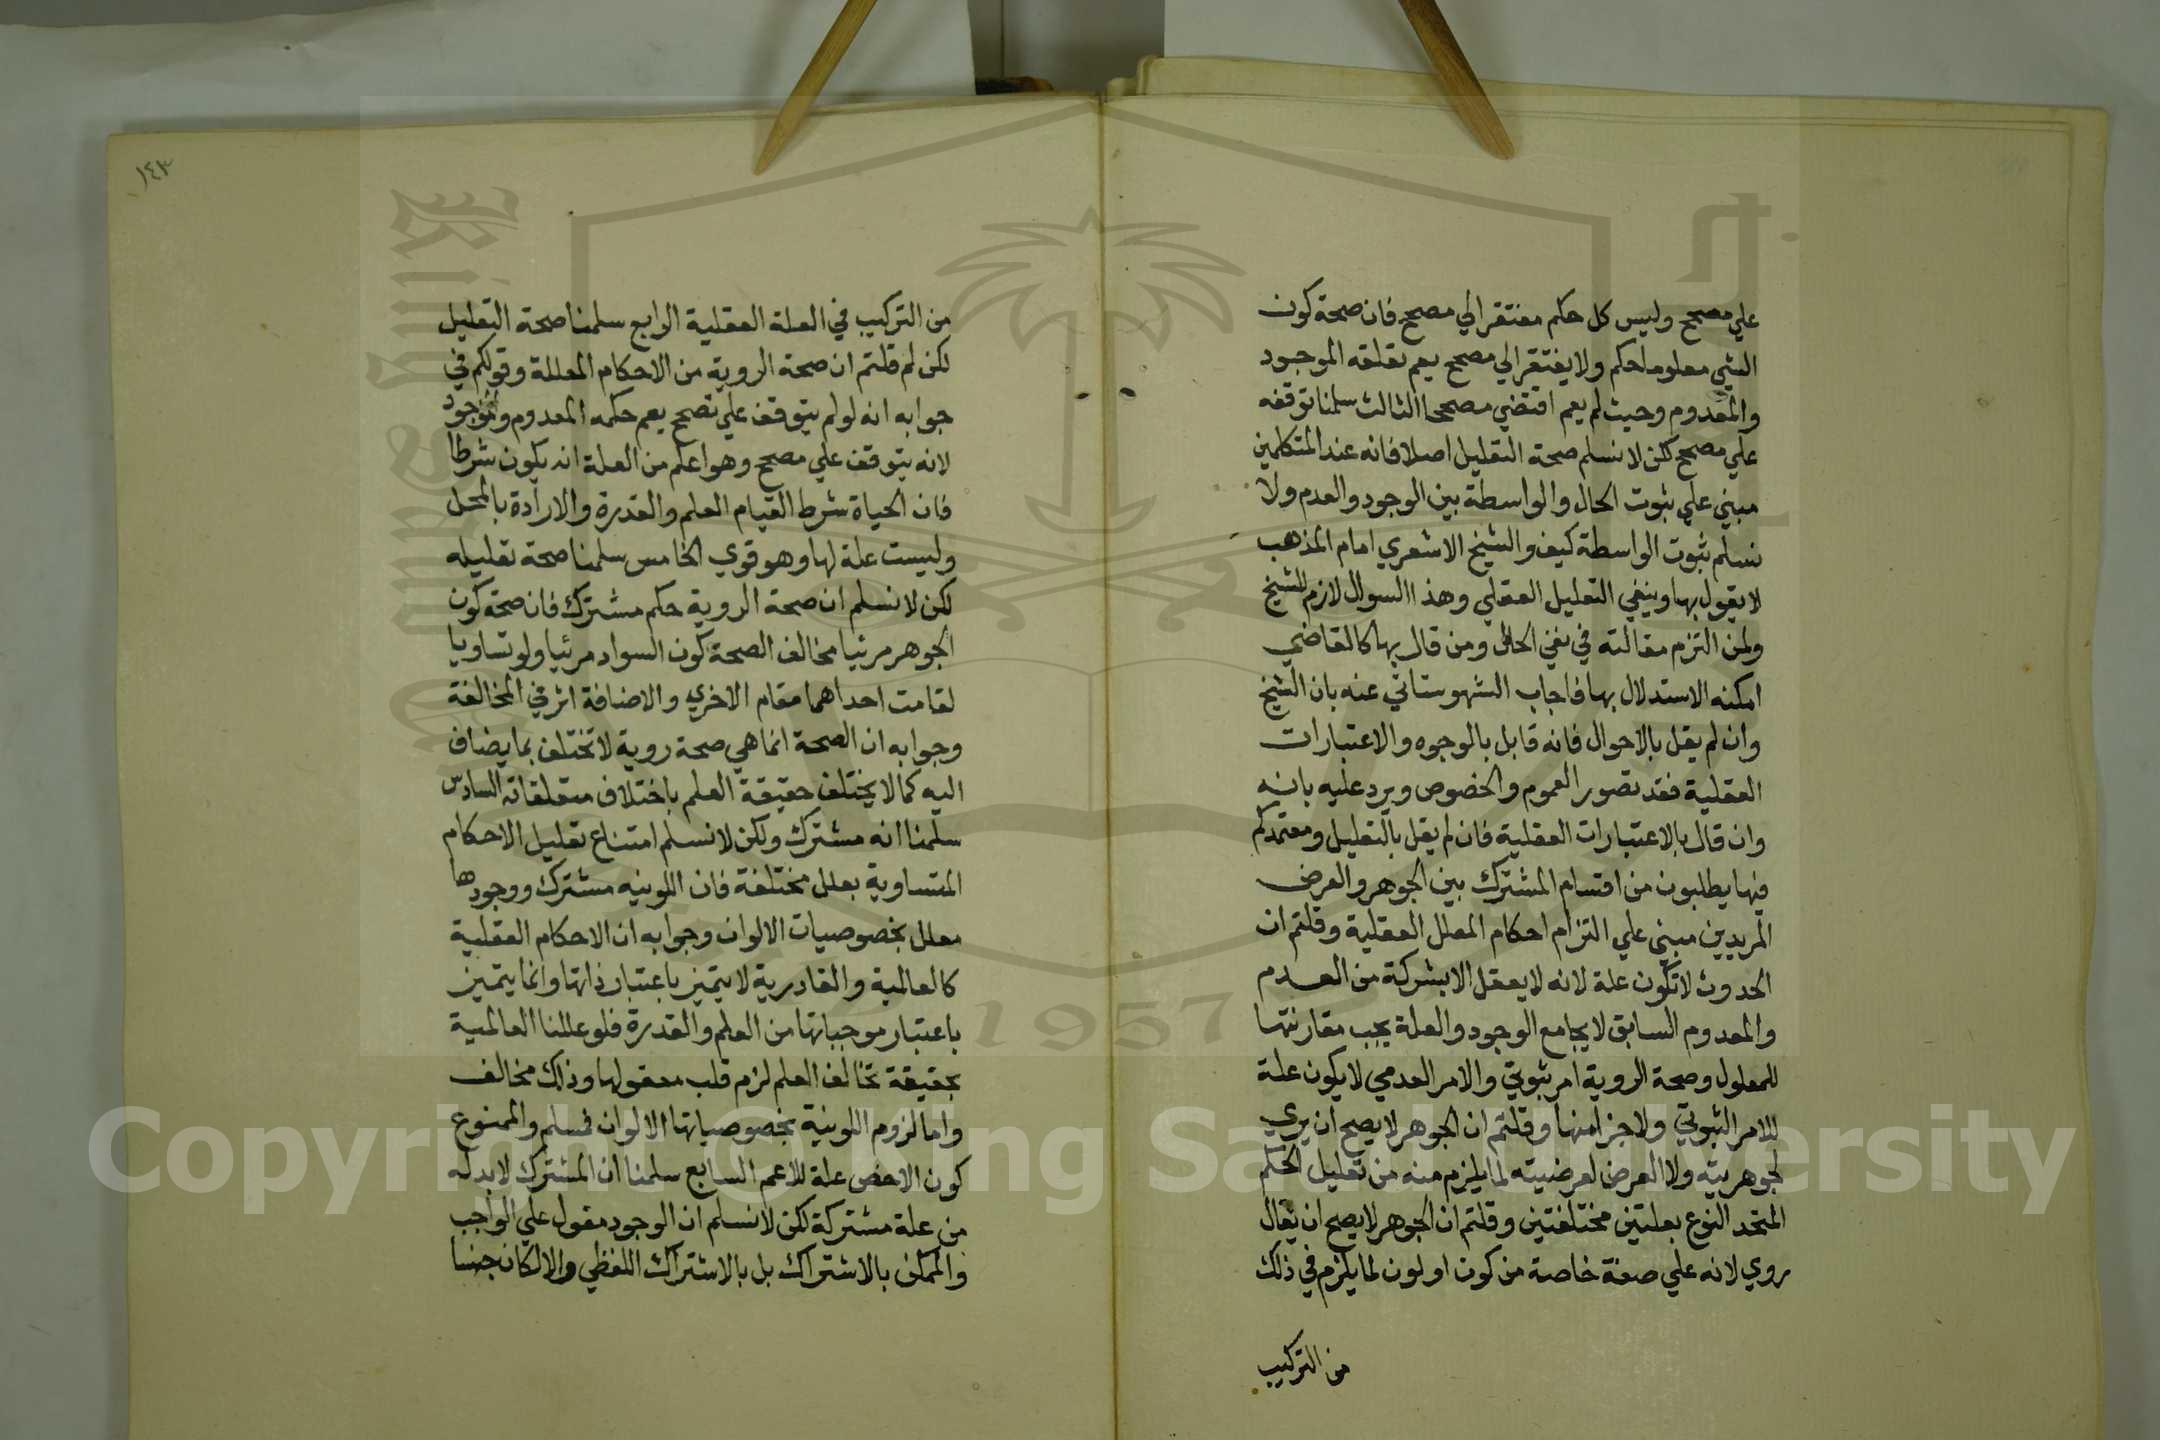 علي مصحح وليس كل حكم مفتقر الي مصحح فان صحة كون
الشي معلوما حكم ولا يفتقر الي مصحح يعم تعلقه الموجود
والمعدوم وحيث لم يعم اقتضي مصححا الثالث سلمنا توقفه
علي مصحح لكن لا نسلم صحة التعليل اصلا فانه عند المتكلمين
مبني علي ثبوت الحال والواسطة بين الوجود والعدم ولا
نسلم ثبوت الواسطة كيف والشيخ الاشعري امام المذهب
لا يقول بها وينفي التعليل العقلي وهذا السوال لازم للشيخ
ولمن التزم مقالته في نفي الحال ومن قال بها كالقاضي
امكنه الاستدلال بها فاجاب الشهوستاني عنه بان الشيخ
وان لم يقل بالاحوال فانه قايل بالوجوه والاعتبارات
العقلية فقد تصور العموم والخصوص ويرد عليه بانه
وان قال بالاعتبارات العقلية فان لم يقل بالتعليل ومعتمدكم
فيها يطلبون من اقسام المشترك بين الجوهر والعرض
المريدين مبني علي التزام احكام العلل العقلية وقلتم ان
الحدوث لا تكون علة لانه لا يعقل الا بشركة من العدم
والمعدوم السابق لا يجامع الوجود والعلة يجب مقارنتها
للمعلول وصحة الروية امر ثبوتي والامر العدمي لا يكون علة
للامر الثبوتي ولا جزا منها وقلتم ان الجوهر لا يصح ان يري
لجوهريته ولا العرض لعرضيته لما يلزم منه من تعليل الحكم
المتحد النوع بعلتين مختلفتين وقلتم ان الجوهر لا يصح ان يقال
يروي لانه علي صفة خاصة من كون او لون لما يلزم في ذلك
من التركيب
١٤٣
من التركيب في العلة العقلية الرابع سلمنا صحة التعليل
لكن لم قلتم ان صحة الروية من الاحكام المعللة وقولكم في
جوابه انه لو لم يتوقف علي تصحح يعم حكمه المعدوم والموجود
لانه يتوقف علي مصحح وهو اعم من العلة انه يكون شرطا
فان الحياة شرط القيام العلم والقدرة والارادة بالمحل
وليست علة لها وهو قوي الخامس سلمنا صحة تعليله
لكن لا نسلم ان صحة الروية حكم مشترك فان صحة كون
الجوهر مرئيا مخالف الصحة كون السواد مرئيا ولو تساويا
لقامت احداهما مقام الاخري والاضافة اثر في المخالفة
وجوابه ان الصحة انما هي صحة روية لا تختلف بما يضاف
اليه كما لا يختلف حقيقة العلم باختلاف متعلقاته السادس
سلمنا انه مشترك ولكن لا نسلم امتناع تعليل الاحكام
المتساوية بعلل مختلفة فان اللونيه مشترك ووجودها
معلل بخصوصيات الالوان وجوابه ان الاحكام العقلية
كالعالمية والقادرية لا يتميز باعتبار ذاتها وانما يتميز
باعتبار موجباتها من العلم والقدرة فلو عللنا العالمية
بحقيقة تخالف العلم لزم قلب معقولها وذلك مخالف
واما لزوم اللونية بخصوصياتها الالوان فمسلم والممنوع
كون الاخص علة للاعم السابع سلمنا ان المشترك لا بد له
من علة مشتركة لكن لا نسلم ان الوجود مقول علي الواجب
والممكن بالاشتراك بل بالاشتراك اللفظي والا لكان جنسا
King Saud University
1957
Copyright © King Saud University